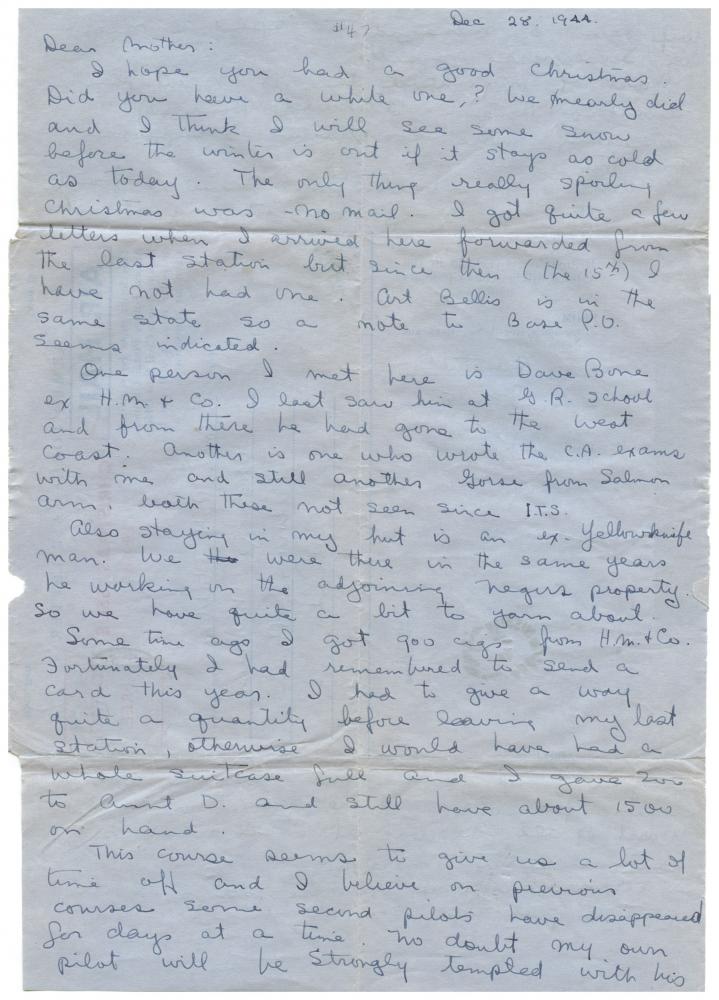 #47
Dec 28. 1944.
Dear Mother:
I hope you had a good Christmas.
Did you have a white one,? We nearly did
and I think I will see some snow
before the winter is out if it stays as cold
as today. The only thing really spoiling
Christmas was - no mail. I got quite a few
letters when I arrived here forwarded from
the last station but since then (the 15th) I
have not had one. Art Bellis is in the
same state so a note to Base P.O.
seems indicated.
One person I met here is Dave Bone
ex H.M. & Co. I last saw him at G.R. School
and from there he had gone to the west
coast. Another is one who wrote the C.A. exams
with me and still another Gorse from Salmon
Arm, both these not seen since I.T.S.
Also staying in my hut is an ex-Yellowknife
man. We were there in the same years
he working on the adjoining Negus property.
So we have quite a bit to yarn about.
Some time ago I got 900 cigs from H.M. & Co.
Fortunately I had remembered to send a
card this year. I had to give a way
quite a quantity before leaving my last
station, otherwise I would have had a
whole suitcase full and I gave 200
to Aunt D. and still have about 1500
on hand.
This course seems to give us a lot of
time off and I believe on previous
courses some second pilots have disappeared
for days at a time. No doubt my own
pilot will be strongly tempted with his